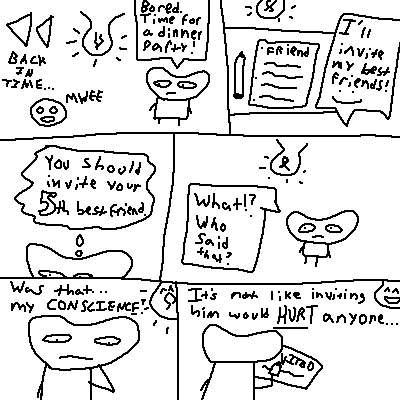 BACK
IN
TIME...
MWEE
Bored.
Time for
a dinner
Party!
Friend
I'll
invite
my best
friends!
You should
invite your
5th best friend
What!?
Who
Said
that?
Was that...
my CONSCIENCE?
It's not like inviting
him would HURT anyone...